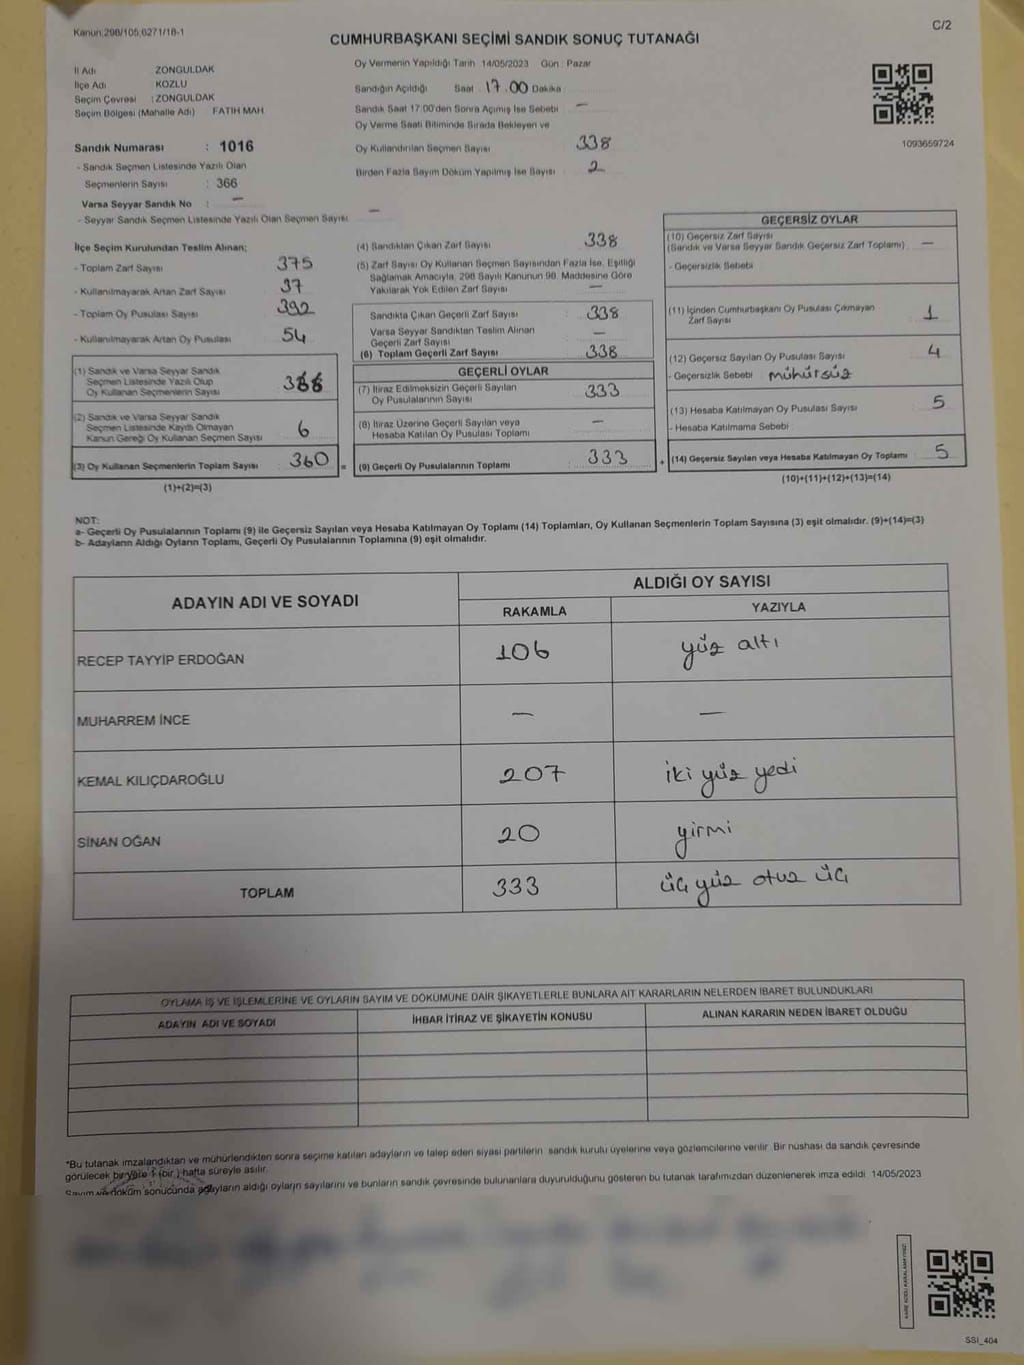 Kanun:298/105,6271/18-1
C/2
CUMHURBAŞKANI SEÇİMİ SANDIK SONUÇ TUTANAĞI
İl Adı ZONGULDAK
İlçe Adı KOZLU
Seçim Çevresi : ZONGULDAK
Seçim Bölgesi (Mahalle Adı) FATİH MAH
Sandık Numarası : 1016
- Sandık Seçmen Listesinde Yazılı Olan
Seçmenlerin Sayısı : 366
Varsa Seyyar Sandık No : —
- Seyyar Sandık Seçmen Listesinde Yazılı Olan Seçmen Sayısı —
Oy Vermenin Yapıldığı Tarih 14/05/2023 Gün : Pazar
Sandığın Açıldığı Saat 17.00 Dakika
Sandık Saat 17.00'den Sonra Açılmış İse Sebebi —
Oy Verme Saati Bitiminde Sırada Bekleyen ve
Oy Kullandırılan Seçmen Sayısı 338
Birden Fazla Sayım Döküm Yapılmış İse Sayısı 2
1093659724
İlçe Seçim Kurulundan Teslim Alınan;
- Toplam Zarf Sayısı 375
- Kullanılmayarak Artan Zarf Sayısı 37
- Toplam Oy Pusulası Sayısı 392
- Kullanılmayarak Artan Oy Pusulası 54
(1) Sandık ve Varsa Seyyar Sandık
Seçmen Listesinde Yazılı Olup
Oy Kullanan Seçmenlerin Sayısı
(2) Sandık ve Varsa Seyyar Sandık
Seçmen Listesinde Kaydı Olmayan
Kanun Gereği Oy Kullanan Seçmen Sayısı 6
(3) Oy Kullanan Seçmenlerin Toplam Sayısı 360 =
(1)+(2)=(3)
(4) Sandıktan Çıkan Zarf Sayısı 338
(5) Zarf Sayısı Oy Kullanan Seçmen Sayısından Fazla İse, Eşitliği
Sağlamak Amacıyla, 298 Sayılı Kanunun 98. Maddesine Göre
Yakılarak Yok Edilen Zarf Sayısı —
Sandıkta Çıkan Geçerli Zarf Sayısı 338
Varsa Seyyar Sandıktan Teslim Alınan
Geçerli Zarf Sayısı —
(6) Toplam Geçerli Zarf Sayısı 338
GEÇERLİ OYLAR
(7) İtiraz Edilmeksizin Geçerli Sayılan
Oy Pusulalarının Sayısı 333
(8) İtiraz Üzerine Geçerli Sayılan veya
Hesaba Katılan Oy Pusulası Toplamı —
(9) Geçerli Oy Pusulalarının Toplamı 333 +
GEÇERSİZ OYLAR
(10) Geçersiz Zarf Sayısı
(Sandık ve Varsa Seyyar Sandık Geçersiz Zarf Toplamı) —
- Geçersizlik Sebebi
(11) İçinden Cumhurbaşkanı Oy Pusulası Çıkmayan
Zarf Sayısı 1
(12) Geçersiz Sayılan Oy Pusulası Sayısı 4
- Geçersizlik Sebebi mühürsüz
(13) Hesaba Katılmayan Oy Pusulası Sayısı 5
- Hesaba Katılmama Sebebi
(14) Geçersiz Sayılan veya Hesaba Katılmayan Oy Toplamı 5
(10)+(11)+(12)+(13)=(14)
NOT:
a- Geçerli Oy Pusulalarının Toplamı (9) ile Geçersiz Sayılan veya Hesaba Katılmayan Oy Toplamı (14) Toplamları, Oy Kullanan Seçmenlerin Toplam Sayısına (3) eşit olmalıdır. (9)+(14)=(3)
b- Adayların Aldığı Oyların Toplamı, Geçerli Oy Pusulalarının Toplamına (9) eşit olmalıdır.
ADAYIN ADI VE SOYADI
ALDIĞI OY SAYISI
RAKAMLA YAZIYLA
RECEP TAYYİP ERDOĞAN 106 yüz altı
MUHARREM İNCE — —
KEMAL KILIÇDAROĞLU 207 iki yüz yedi
SİNAN OĞAN 20 yirmi
TOPLAM 333 üç yüz otuz üç
OYLAMA İŞ VE İŞLEMLERİNE VE OYLARIN SAYIM VE DÖKÜMÜNE DAİR ŞİKAYETLERLE BUNLARA AİT KARARLARIN NELERDEN İBARET BULUNDUKLARI
ADAYIN ADI VE SOYADI İHBAR İTİRAZ VE ŞİKAYETİN KONUSU ALINAN KARARIN NEDEN İBARET OLDUĞU
*Bu tutanak imzalandıktan ve mühürlendikten sonra seçime katılan adayların ve talep eden siyasi partilerin sandık kurulu üyelerine veya gözlemcilerine verilir. Bir nüshası da sandık çevresinde
görülecek bir yere 1 (bir ) hafta süreyle asılır.
Sayım ve döküm sonucunda adayların aldığı oyların sayılarını ve bunların sandık çevresinde bulunanlara duyurulduğunu gösteren bu tutanak tarafımızdan düzenlenerek imza edildi 14/05/2023
SSI_404